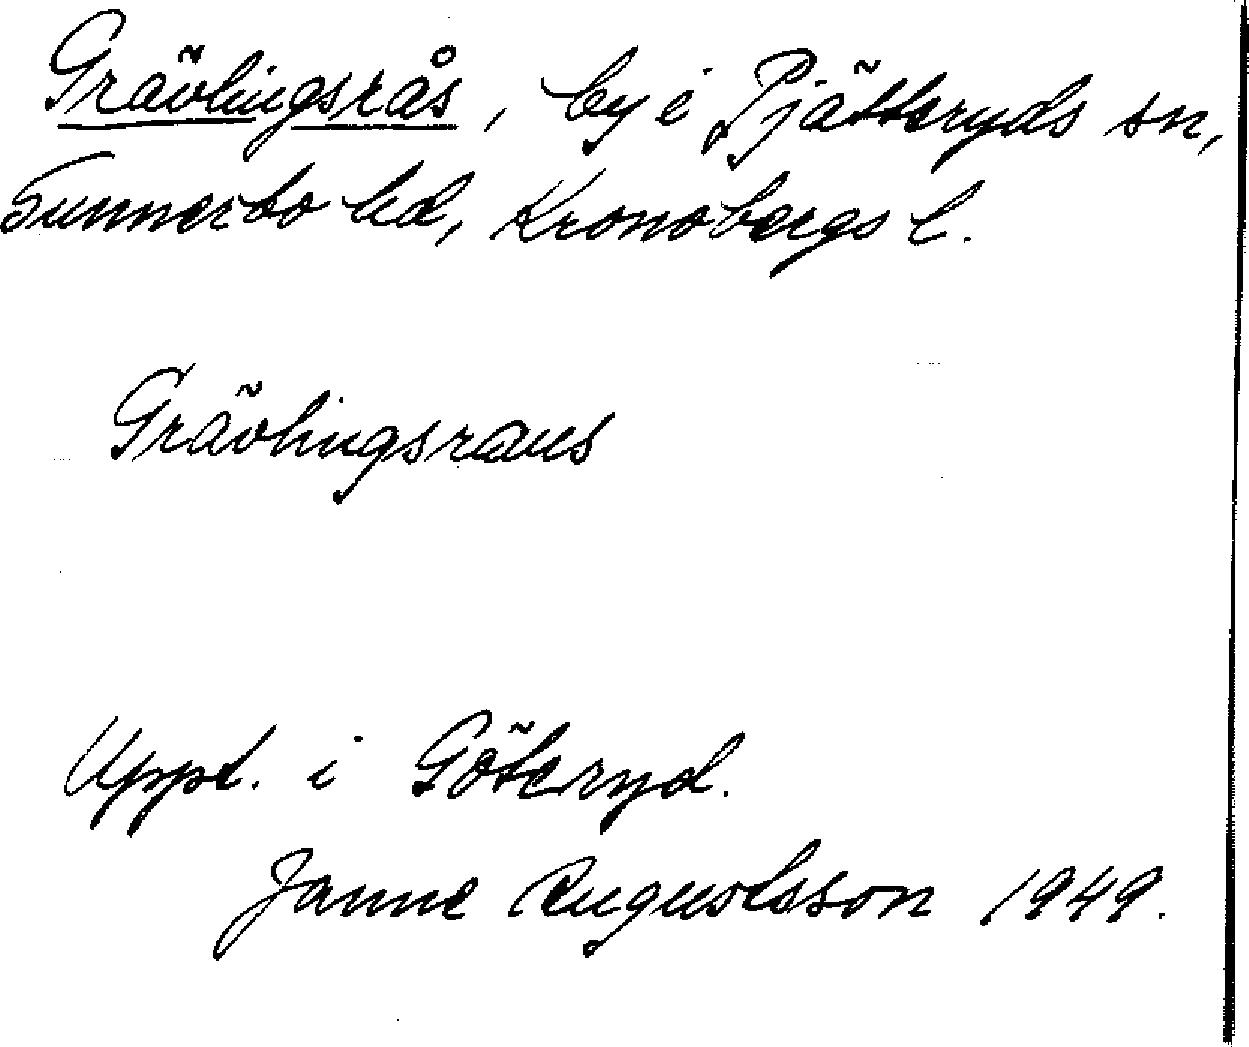 Grävlingsrås, by i Pjätteryds sn,
Sunnerbo hd, Kronobergs l.
Grävlingsraus
Uppt. i Göteryd.
Janne Augustsson 1949.